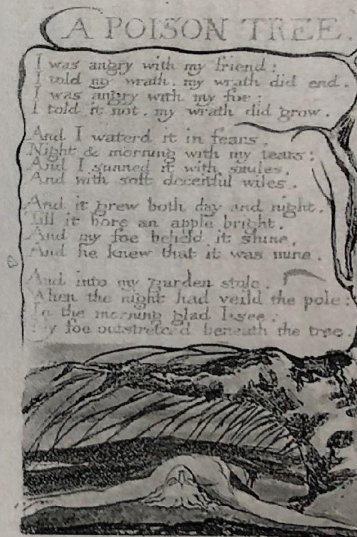 A POISON TREE.
I was angry with my friend:
I told my wrath, my wrath did end.
I was angry with my foe:
I told it not, my wrath did grow.
And I waterd it in fears,
Night & morning with my tears:
And I sunned it with smiles,
And with soft deceitful wiles.
And it grew both day and night,
Till it bore an apple bright.
And my foe beheld it shine,
And he knew that it was mine.
And into my garden stole,
When the night had veild the pole;
In the morning glad I see,
My foe outstretchd beneath the tree.